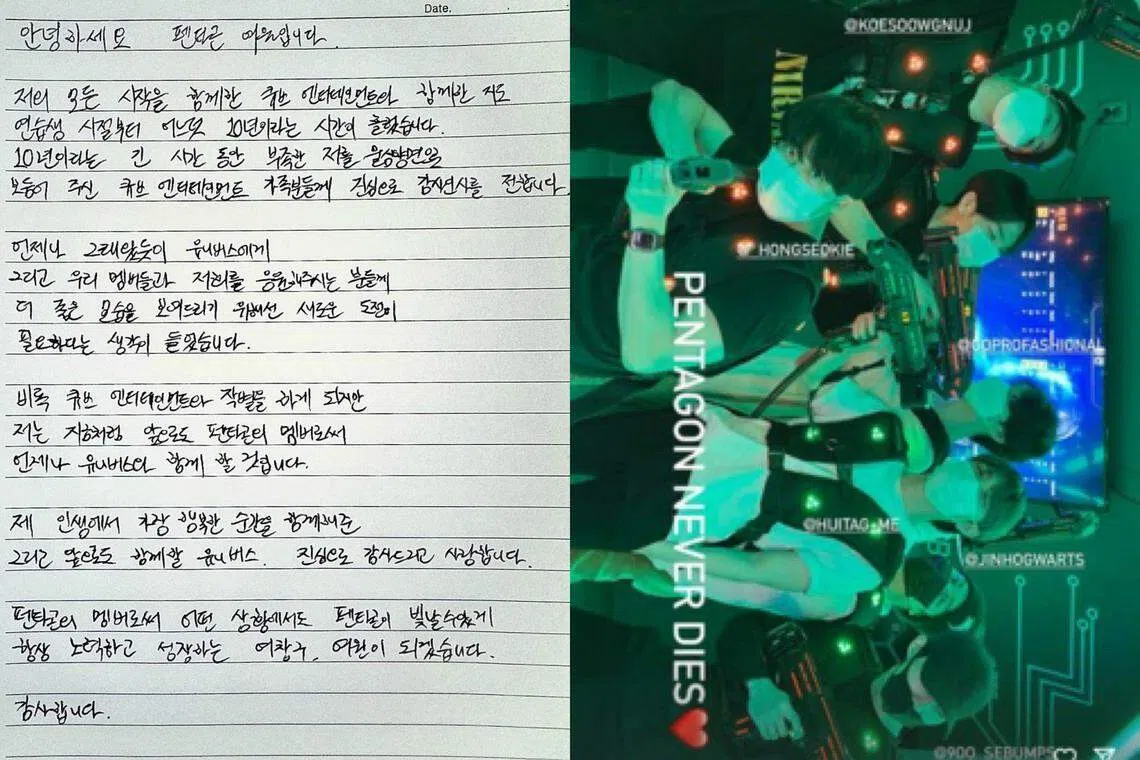 Date.
안녕하세요 펜타곤 여원입니다.
저의 모든 시작을 함께한 큐브 엔터테인먼트와 함께한 지도
연습생 시절부터 어느덧 10년이라는 시간이 흘렀습니다.
10년이라는 긴 시간 동안 부족한 저를 물심양면으로
보듬어 주신 큐브 엔터테인먼트 가족분들께 진심으로 감사인사를 전합니다.
언제나 그래왔듯이 유니버스에게
그리고 우리 멤버들과 저희를 응원해주시는 분들께
더 좋은 모습을 보여드리기 위해선 새로운 도전이
필요하다는 생각이 들었습니다.
비록 큐브 엔터테인먼트와 작별을 하게 되지만
저는 지금처럼 앞으로도 펜타곤의 멤버로써
언제나 유니버스와 함께 할 것입니다.
제 인생에서 가장 행복한 순간을 함께해준
그리고 앞으로도 함께할 유니버스. 진심으로 감사드리고 사랑합니다.
펜타곤의 멤버로써 어떤 상황에서도 펜타곤이 빛날수있게
항상 노력하고 성장하는 여창구, 여원이 되겠습니다.
감사합니다.
@KOESOOWGNUJ
HONGSEOKIE
@GOPROFASHIONAL
@HUITAG_ME
@JINHOGWARTS
@900_SEBUMPS
PENTAGON NEVER DIES